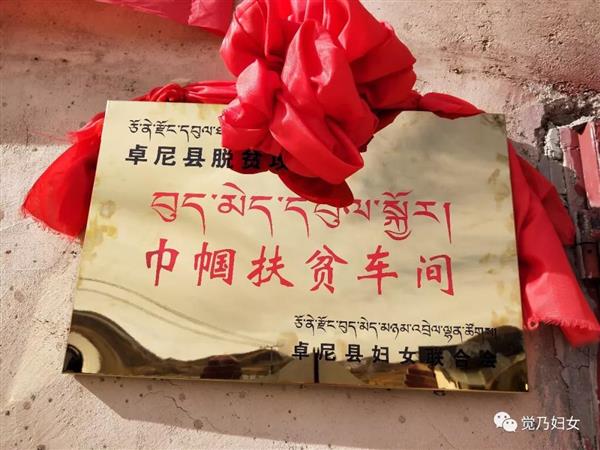 ཅོ་ནེ་རྫོང་དབུལ་
卓尼县脱贫攻
བུད་མེད་དབུལ་སྐྱོར།
巾帼扶贫车间
ཅོ་ནེ་རྫོང་བུད་མེད་མཉམ་འབྲེལ་ལྷན་ཚོགས།
卓尼县妇女联合会
觉乃妇女